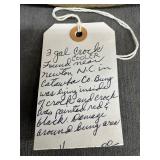 3 gal Crock
COOLER
Found near
newton, N.C in
Catawba Co. Bung
was lying inside
of crock and crock
was painted red &
black. Damage
around bung area